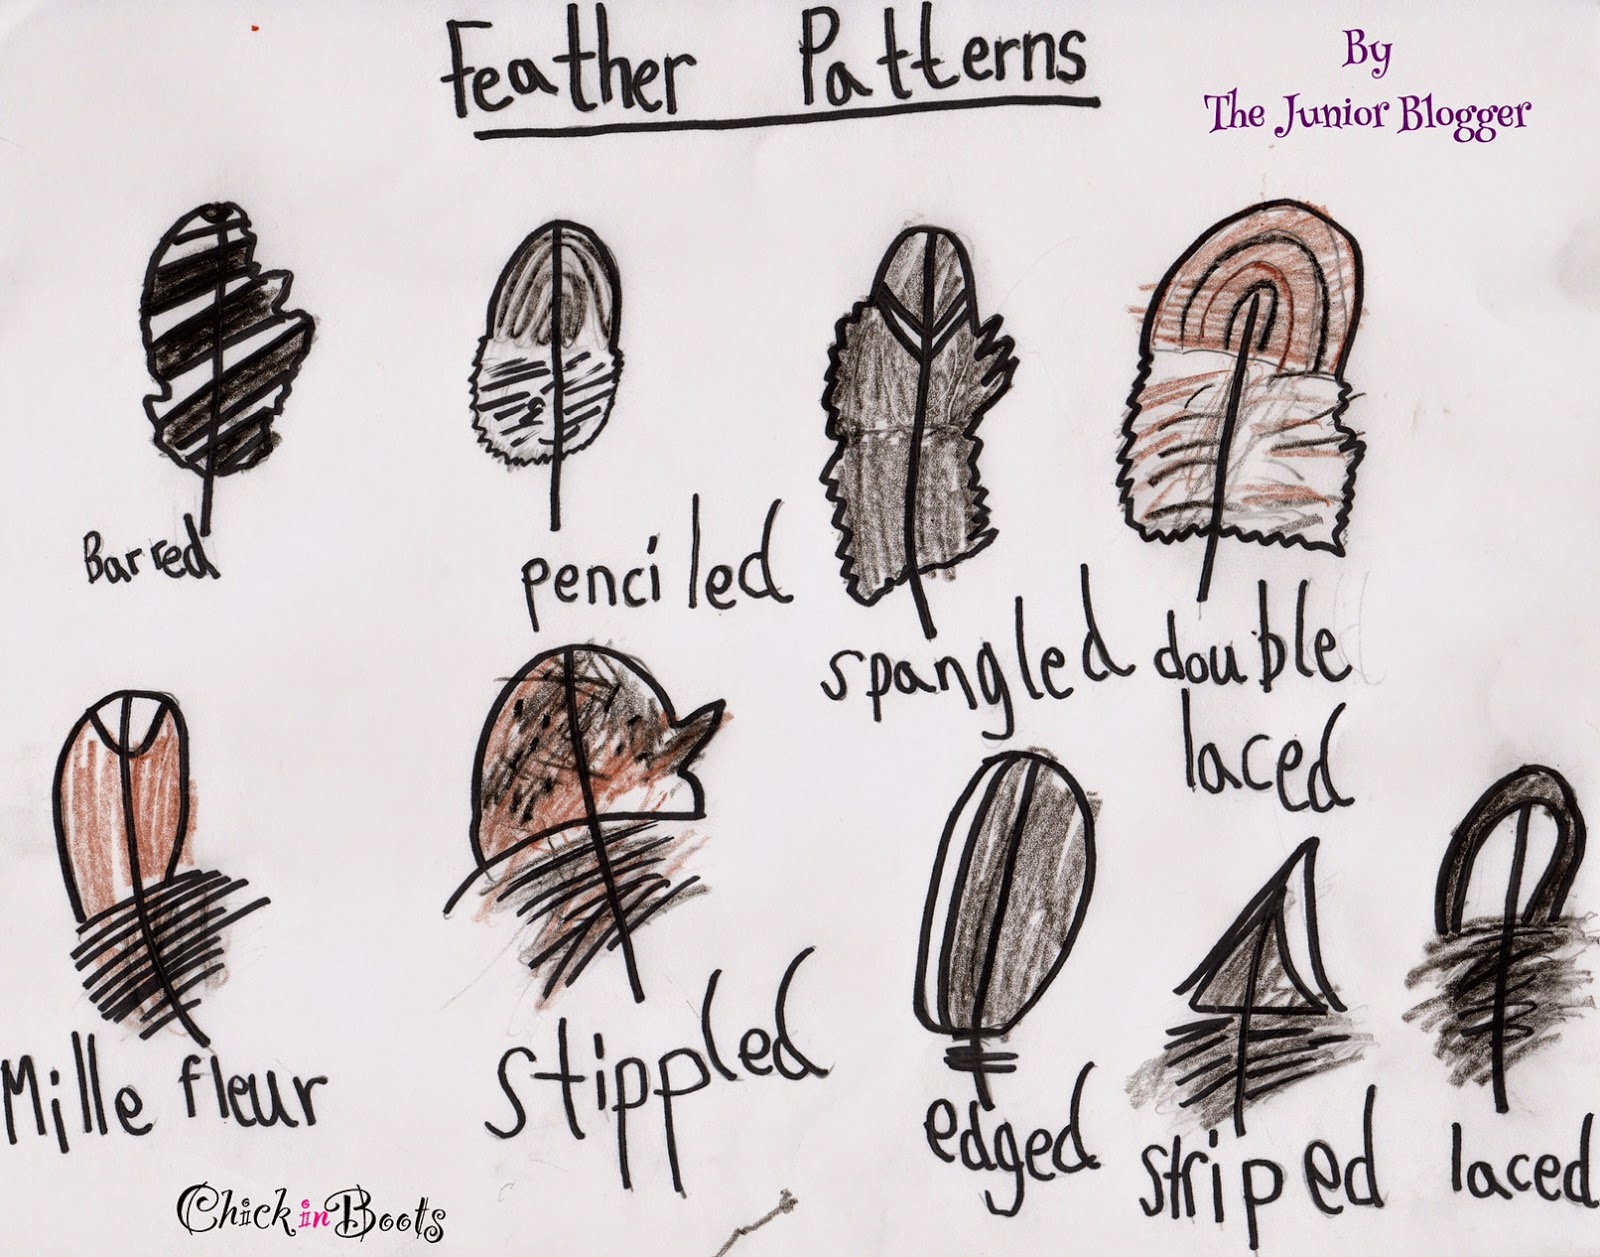 Feather Patterns
By
The Junior Blogger
Barred
penciled
spangled
double
laced
Mille fleur
stippled
edged
striped
laced
ChickinBoots